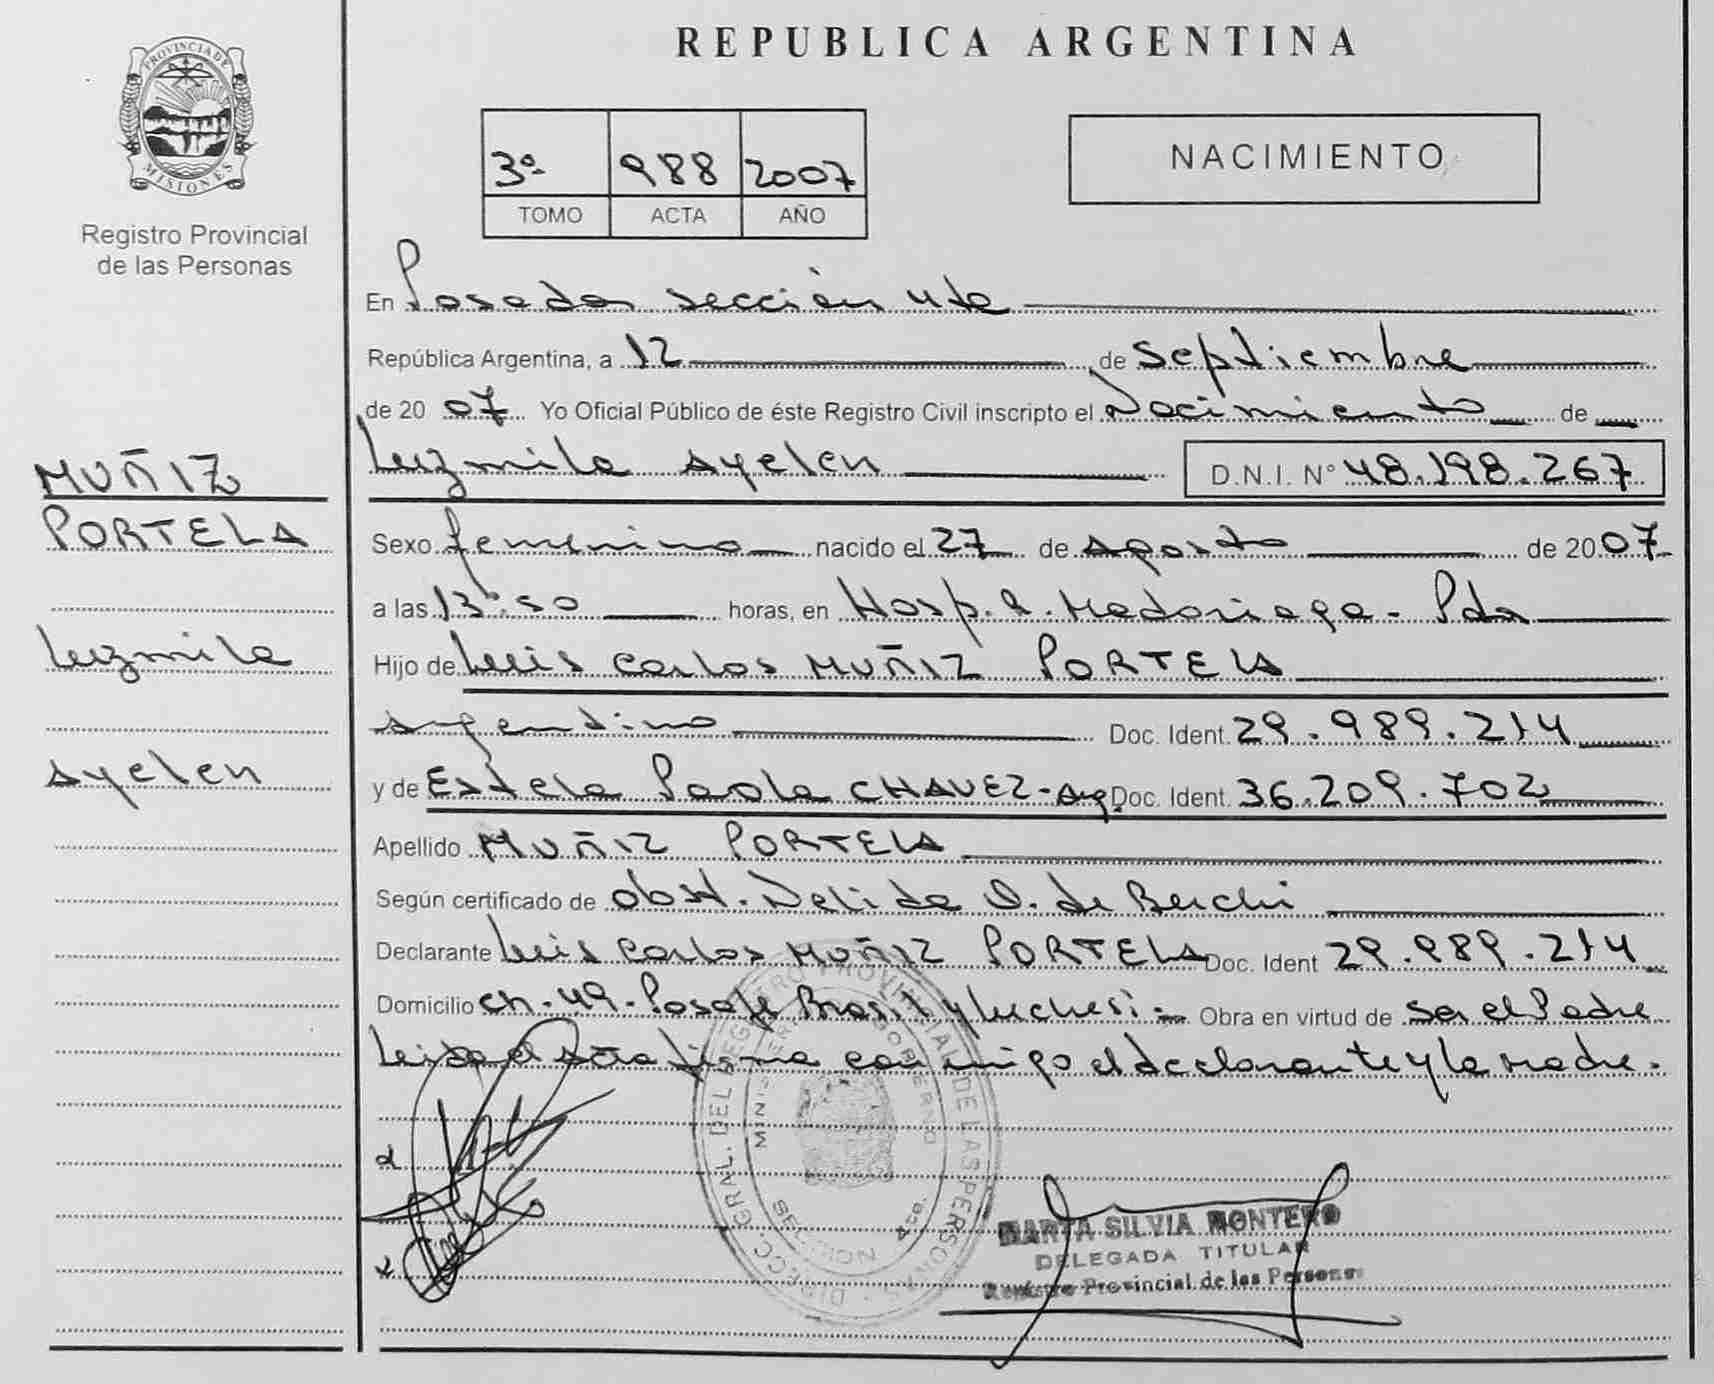 REPUBLICA ARGENTINA
PROVINCIA DE
MISIONES
Registro Provincial
de las Personas
3º 988 2007
TOMO ACTA AÑO
NACIMIENTO
En Posadas sección 4ta
República Argentina, a 12 de septiembre
de 20 07 Yo Oficial Público de éste Registro Civil inscripto el Nacimiento de
Luzmila Ayelen D.N.I. Nº 48.198.267
MUÑIZ
PORTELA
Luzmila
Ayelen
Sexo femenino nacido el 27 de Agosto de 20 07
a las 13:50 horas, en Hosp. R. Madariaga - Pdas
Hijo de Luis Carlos MUÑIZ PORTELA
Argentino Doc. Ident. 29.989.214
y de Estela Paola CHAVEZ - Arg. Doc. Ident. 36.209.702
Apellido MUÑIZ PORTELA
Según certificado de obst. Delida de
Declarante Luis Carlos MUÑIZ PORTELA Doc. Ident 29.989.214
Domicilio Ch. 49 - Pasaje Brasil y Luchesi - Obra en virtud de ser el Padre
Leida el Acta firma conmigo el declarante y la Madre.
DIRECC. GRAL. DEL REGISTRO PROVINCIAL DE LAS PERSONAS
MARTA SILVIA MONTERO
DELEGADA TITULAR
Registro Provincial de las Personas